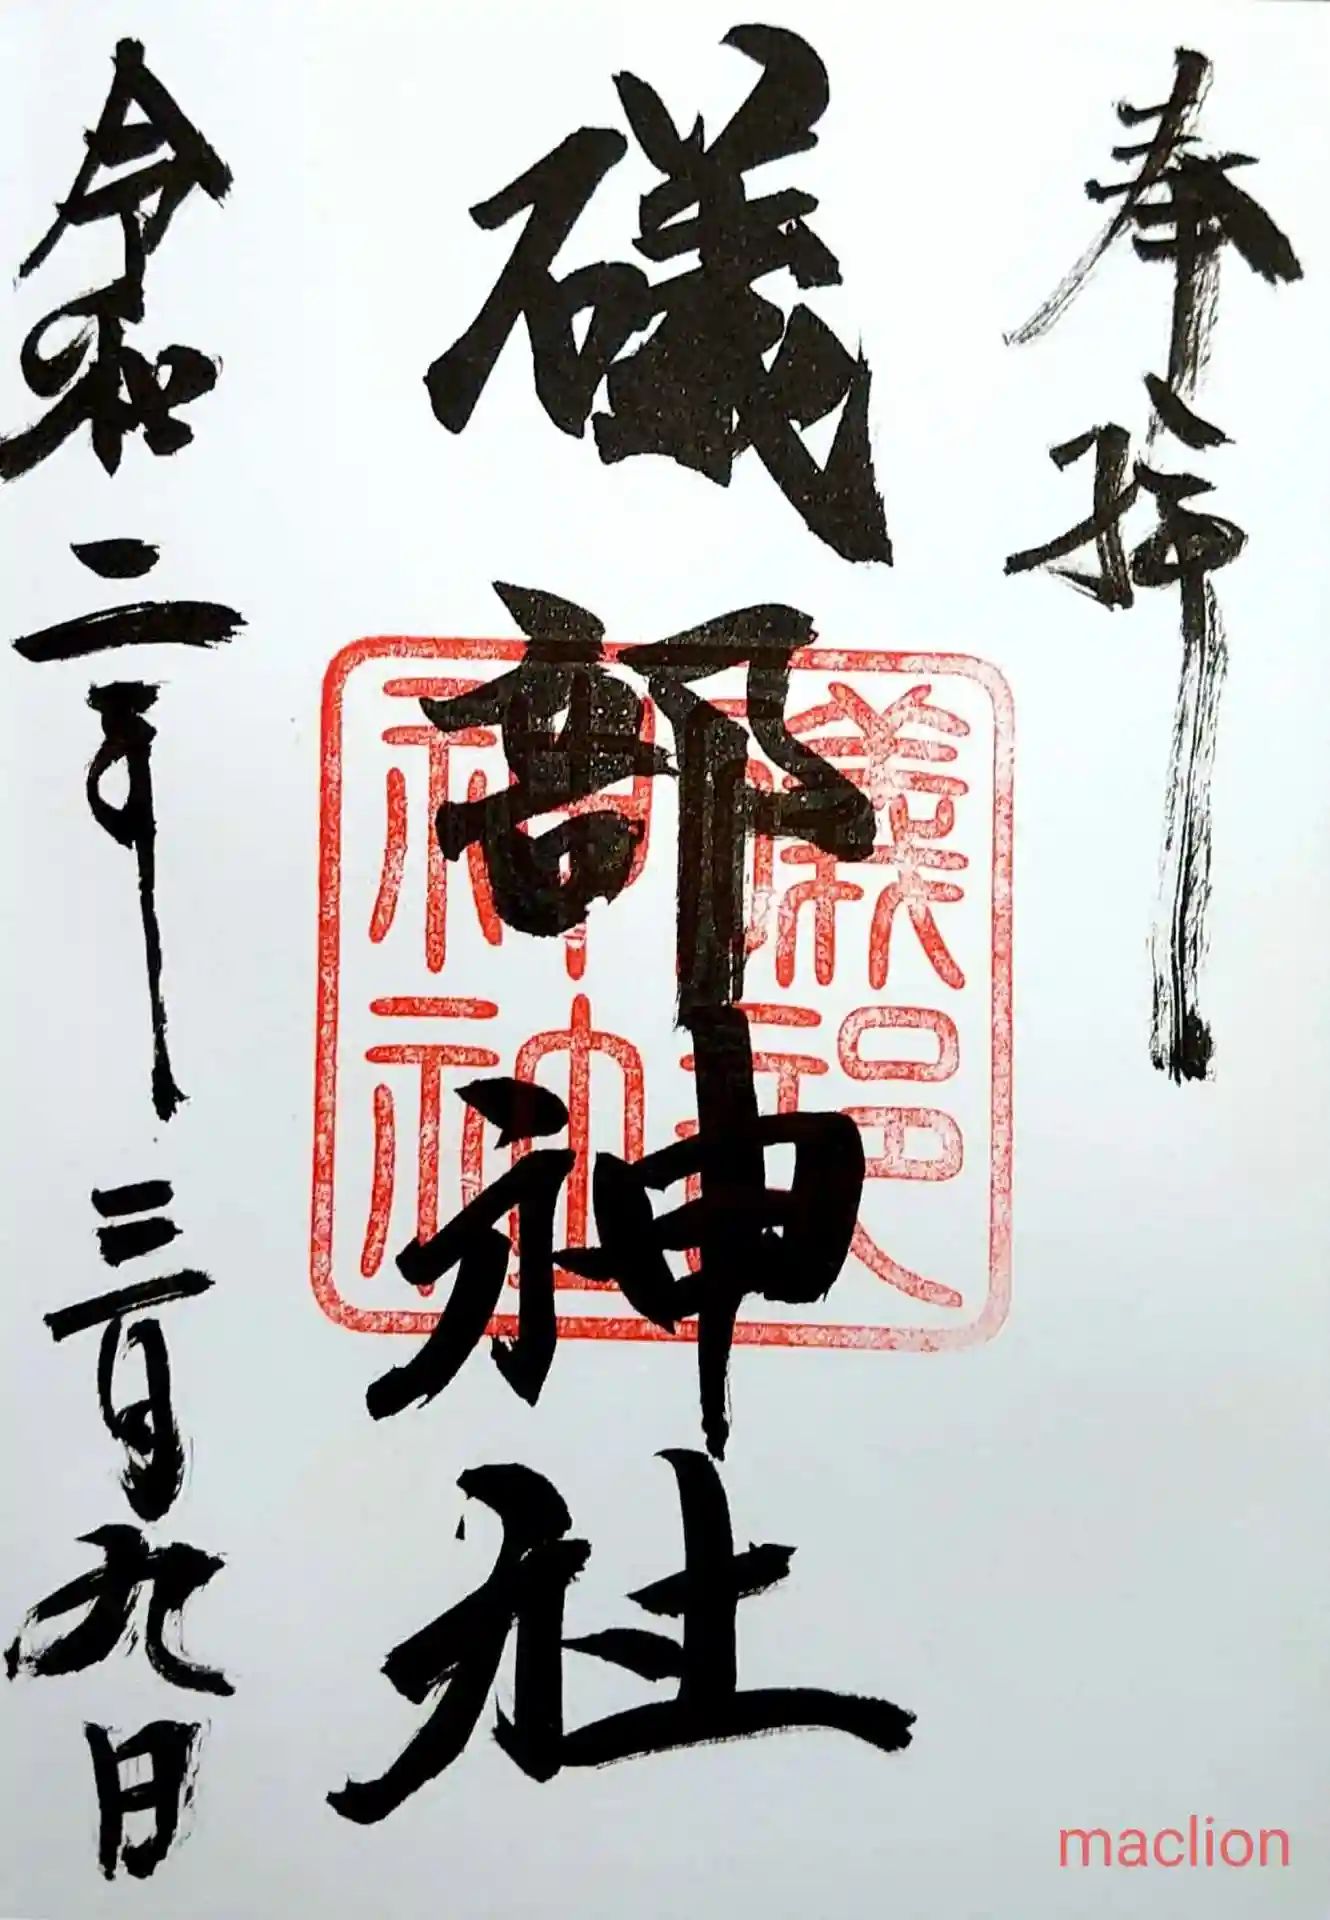 奉拝
礒部神社
礒部
神社
令和二年三月九日
maclion